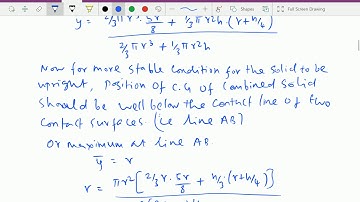 y̅ = 2/3πr³·5r/8 + 1/3πr²h (r+h/4)
2/3πr³ + 1/3πr²h
Now for more stable condition for the solid to be
upright, Position of C.G of Combined Solid
Should be well below the Contact line of two
Contact surfaces. (i.e line AB)
Or maximum at line AB.
y̅ = r
r = πr² [ 2/3 r · 5r/8 + h/3 · (r+h/4) ]